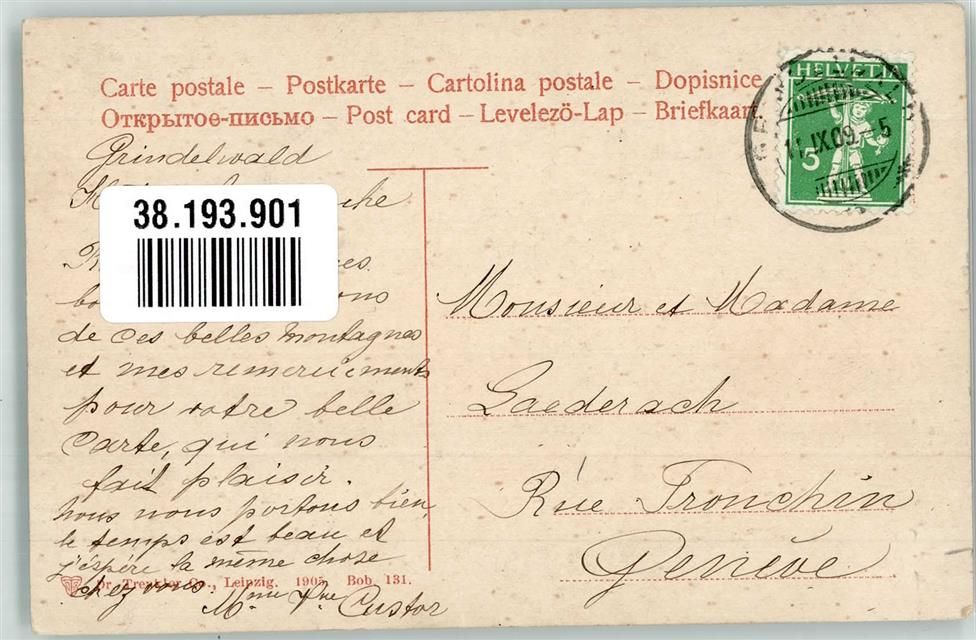 Carte postale – Postkarte – Cartolina postale – Dopisnice
Открытое-письмо – Post card – Levelező-Lap – Briefkaart
HELVETIA
5
11.IX.09.-5
Grindelwald
38.193.901
de ces belles montagnes
et mes remerciements
pour votre belle
Carte, qui nous
fait plaisir.
nous nous portons bien
le temps est beau et
j'espère la même chose
chez vous.
Custor
Monsieur et Madame
Laederach
Rue Tronchin
Genève
Dr. Trenkler Co., Leipzig. 1905. Bob. 131.